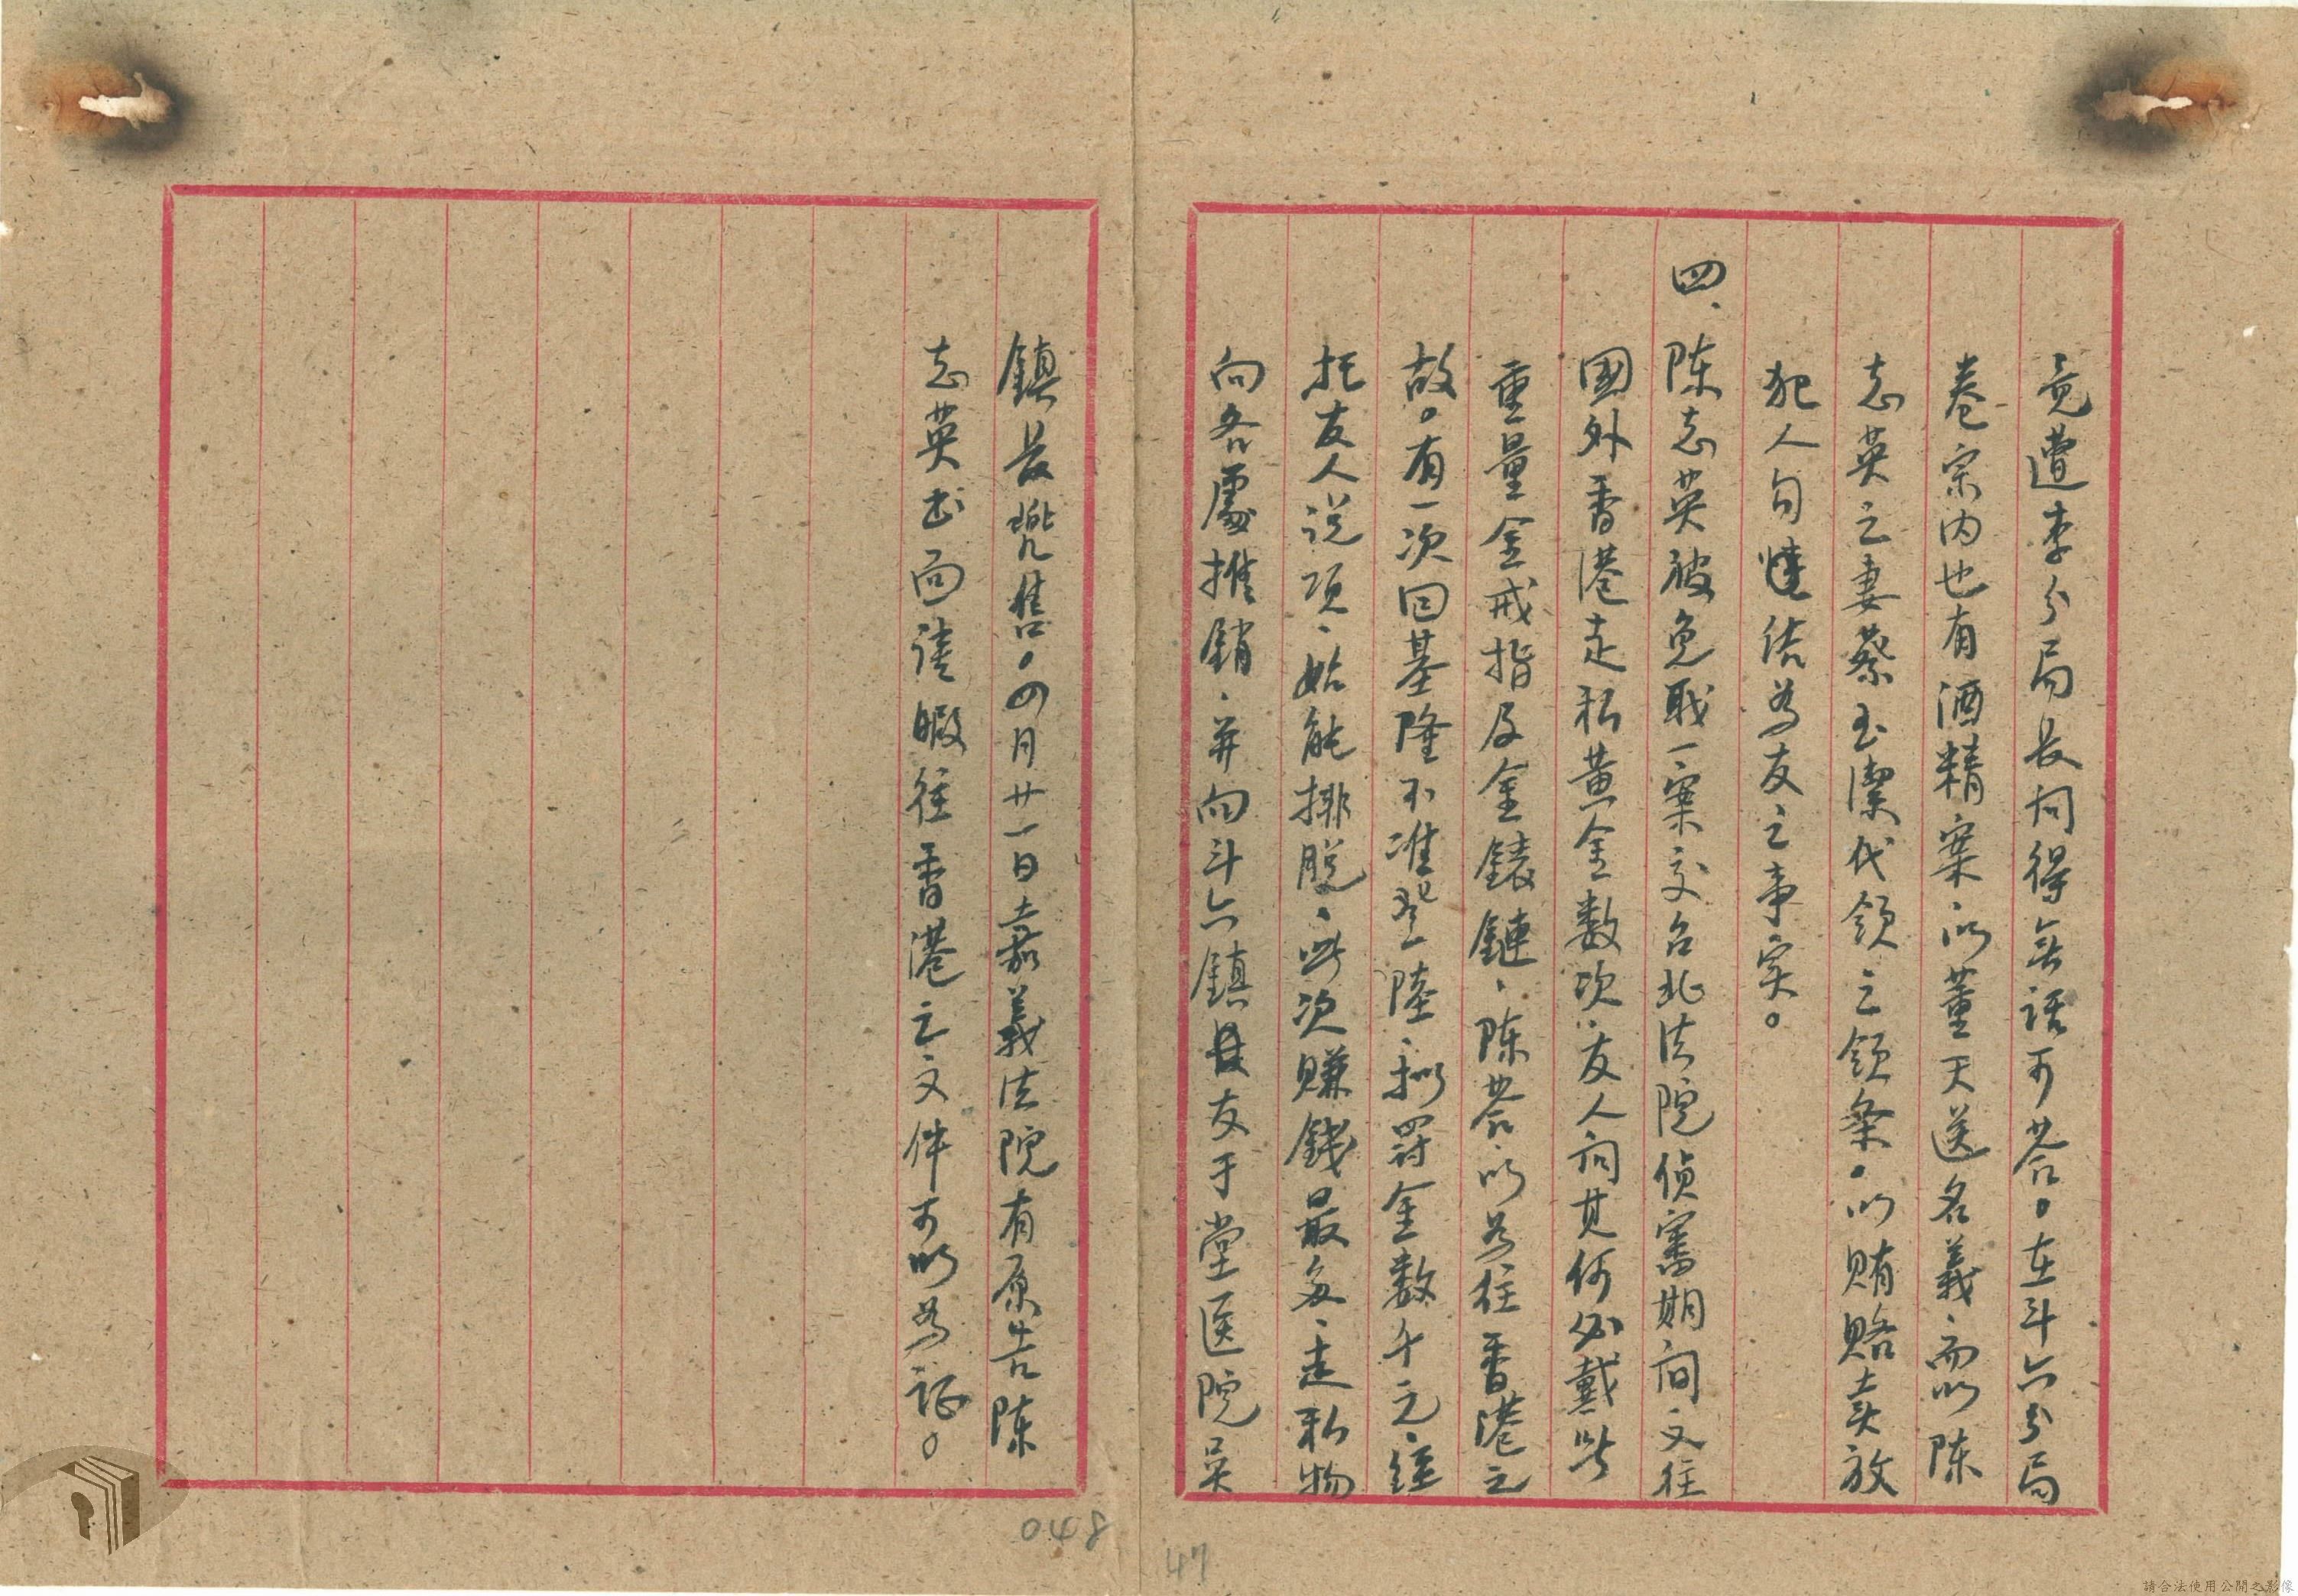 竟遭李分局長问得无話可荅。在斗六分局
卷宗内也有酒精案以董天送名義、而以陈
志英之妻蔡玉潔代領之領条。以賄賂卖放
犯人勾結为友之事实。
四、陈志英被免职一案交台北法院偵審期间又往
國外香港走私黄金数次、友人问其何必戴此
重量金戒指及金錶鏈、陈荅以为往香港之
故。有一次回基隆不准登陸、拟罸金数千元、経
托友人说项、始能排脱、此次賺錢最多、走私物
向各處推銷、并向斗六鎮長友于堂医院吴
鎮長兜售。四月廿一日嘉義法院有原告陈
志英出面請暇往香港之文件可以为证。
048
47
請合法使用公開之影像